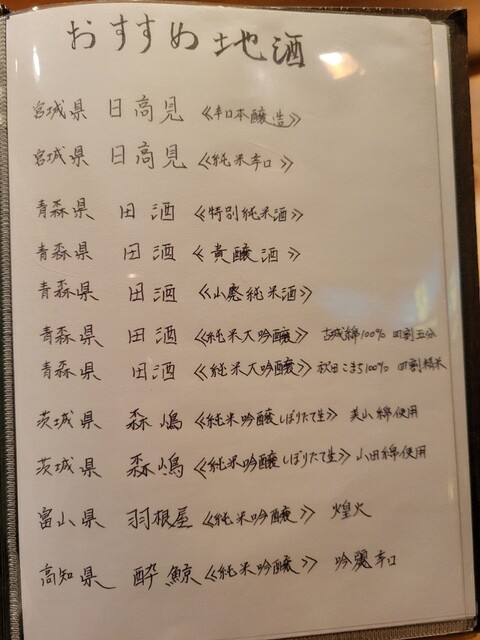 おすすめ地酒
宮城県 日高見 《辛口本醸造》
宮城県 日高見 《純米辛口》
青森県 田酒 《特別純米酒》
青森県 田酒 《貴醸酒》
青森県 田酒 《山廃純米酒》
青森県 田酒 《純米大吟醸》 古城錦100% 四割五分
青森県 田酒 《純米大吟醸》 秋田こまち100% 四割精米
茨城県 森嶋 《純米吟醸しぼりたて生》 美山錦使用
茨城県 森嶋 《純米吟醸しぼりたて生》 山田錦使用
富山県 羽根屋 《純米吟醸》 煌火
高知県 酔鯨 《純米吟醸》 吟麗辛口